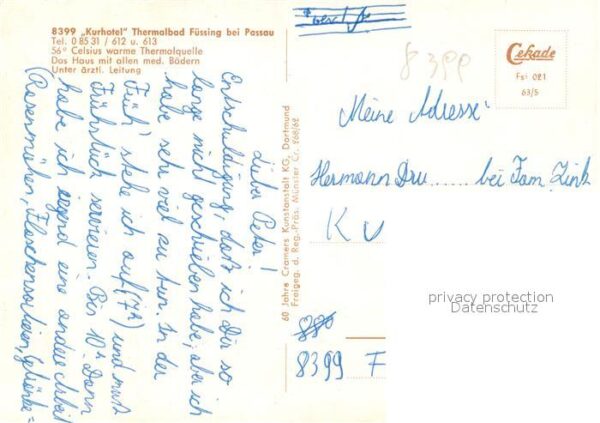 8399 „Kurhotel" Thermalbad Füssing bei Passau
Tel. 0 85 31 / 612 u. 613
56° Celsius warme Thermalquelle
Das Haus mit allen med. Bädern
Unter ärztl. Leitung
Lieber Peter!
Entschuldigung, daß ich Dir so
lange nicht geschrieben habe, aber ich
habe sehr viel zu tun. In der
Früh' stehe ich auf (7h) und muß
Frühstück servieren. Bis 10h. Dann
habe ich irgend eine andere Arbeit
(Rasenmähen, Flaschensortieren, Getränke=
60 Jahre Cramers Kunstanstalt KG, Dortmund
Freigeg. d. Reg.-Präs. Münster Cr. 268/62
8399
Cekade
Fsi 021
63/5
Meine Adresse:
Hermann Dru bei Fam. Zink
K U
880
8399 F
privacy protection
Datenschutz